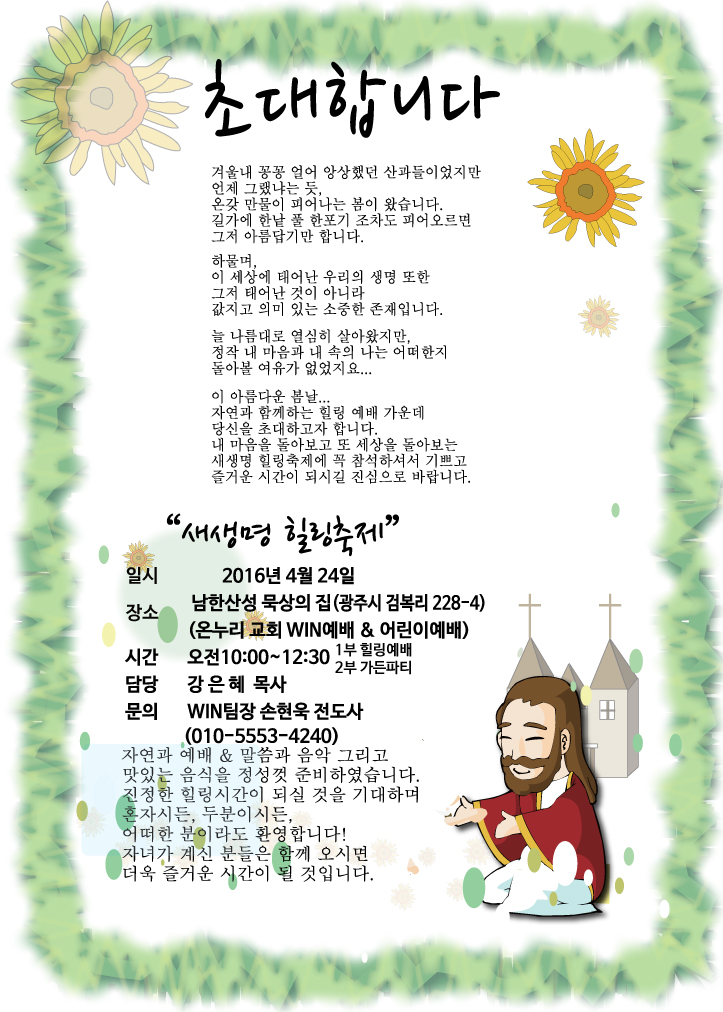 초대합니다
겨울내 꽁꽁 얼어 앙상했던 산과들이었지만
언제 그랬냐는 듯,
온갖 만물이 피어나는 봄이 왔습니다.
길가에 한낱 풀 한포기 조차도 피어오르면
그저 아름답기만 합니다.
하물며,
이 세상에 태어난 우리의 생명 또한
그저 태어난 것이 아니라
값지고 의미 있는 소중한 존재입니다.
늘 나름대로 열심히 살아왔지만,
정작 내 마음과 내 속의 나는 어떠한지
돌아볼 여유가 없었지요...
이 아름다운 봄날...
자연과 함께하는 힐링 예배 가운데
당신을 초대하고자 합니다.
내 마음을 돌아보고 또 세상을 돌아보는
새생명 힐링축제에 꼭 참석하셔서 기쁘고
즐거운 시간이 되시길 진심으로 바랍니다.
“새생명 힐링축제”
일시 2016년 4월 24일
장소 남한산성 묵상의 집(광주시 검복리 228-4)
(온누리 교회 WIN예배 & 어린이예배)
시간 오전10:00~12:30 1부 힐링예배
2부 가든파티
담당 강은혜 목사
문의 WIN팀장 손현욱 전도사
(010-5553-4240)
자연과 예배 & 말씀과 음악 그리고
맛있는 음식을 정성껏 준비하였습니다.
진정한 힐링시간이 되실 것을 기대하며
혼자시든, 두분이시든,
어떠한 분이라도 환영합니다!
자녀가 계신 분들은 함께 오시면
더욱 즐거운 시간이 될 것입니다.